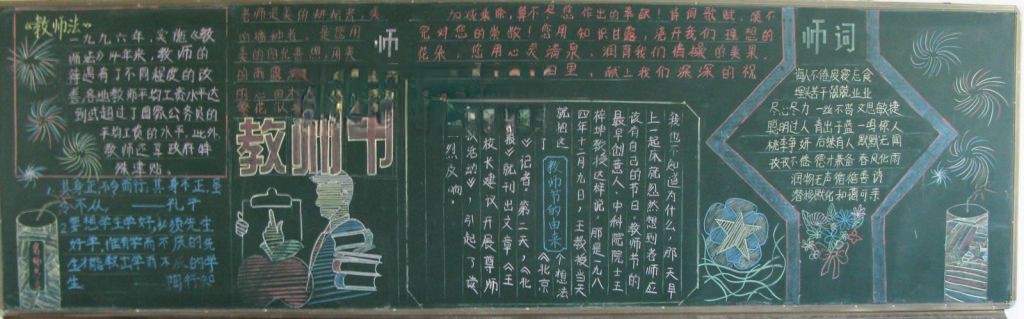 《教师法》
一九九六年，实施《教
师法》几年来，教师的
待遇有了不同程度的改
善，各地教师平均工资水平达
到或超过了国家公务员的
平均工资的水平，此外
教师还享政府特
殊津贴。
1.其身正，不令而行；其身不正，虽
令不从。——孔子
2.要想学生学好，必须先生
好学，惟有学而不厌的先
生才能教出学而不厌的学
生 ——陶行知
老师是美的耕耘者，美
的播种者。是您用
美的阳光普照，用美
的雨露
师
加减乘除，算不尽您作出的奉献！诗词歌赋，颂不
完对您的崇敬！您用知识甘露，浇开我们理想的
花朵，您用心灵清泉，润育我们情操的美果。
日里，献上我们深深的祝
教师节
教师节的由来
我也不知道为什么，那天早
上一起床就忽然想到老师应
该有自己的节日。教师节的
最早创意人、中科院院士王
梓坤教授这样说。那是一九八
四年十二月九日，王教授当天
就把这个想法
《北京
》记者。第二天，《北
报》就刊出文章《王
校长建议开展尊师
活动》，引起了强
烈反响。
师词
诲人不倦废寝忘食
埋头苦干兢兢业业
尽心尽力一丝不苟文思敏捷
聪明过人青出于蓝一鸣惊人
桃李争妍后继有人默默无闻
孜孜不倦德才兼备春风化雨
润物无声循循善诱
潜移默化和蔼可亲